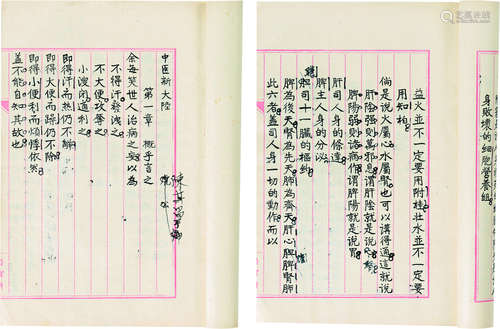 中医新大陸
第一章 概乎言之
余每笑世人治病之妄以为
不得汗發洩之
不大便攻導之
小溲閉通利之
即得汗而熱仍不解
即得大便而躁仍不除
即得小便利而煩悸依然
蓋不能自知其故也
身敗壞的細胞營養組
益火並不一定要用附桂壮水並不一定要
用知柏
倘是说火屬心水屬腎也可以講得通這就说
肝陰强则萬邪息謂肝陰就是说
脾陽弱则諸病作謂脾陽就是说胃
肝司人身的條達
脾主人身的分泌
司十一臟的樞紐
脾為後天腎為先天肺為齊天肝心膽脾腎肺
此六者蓋司人身一切的動作而以